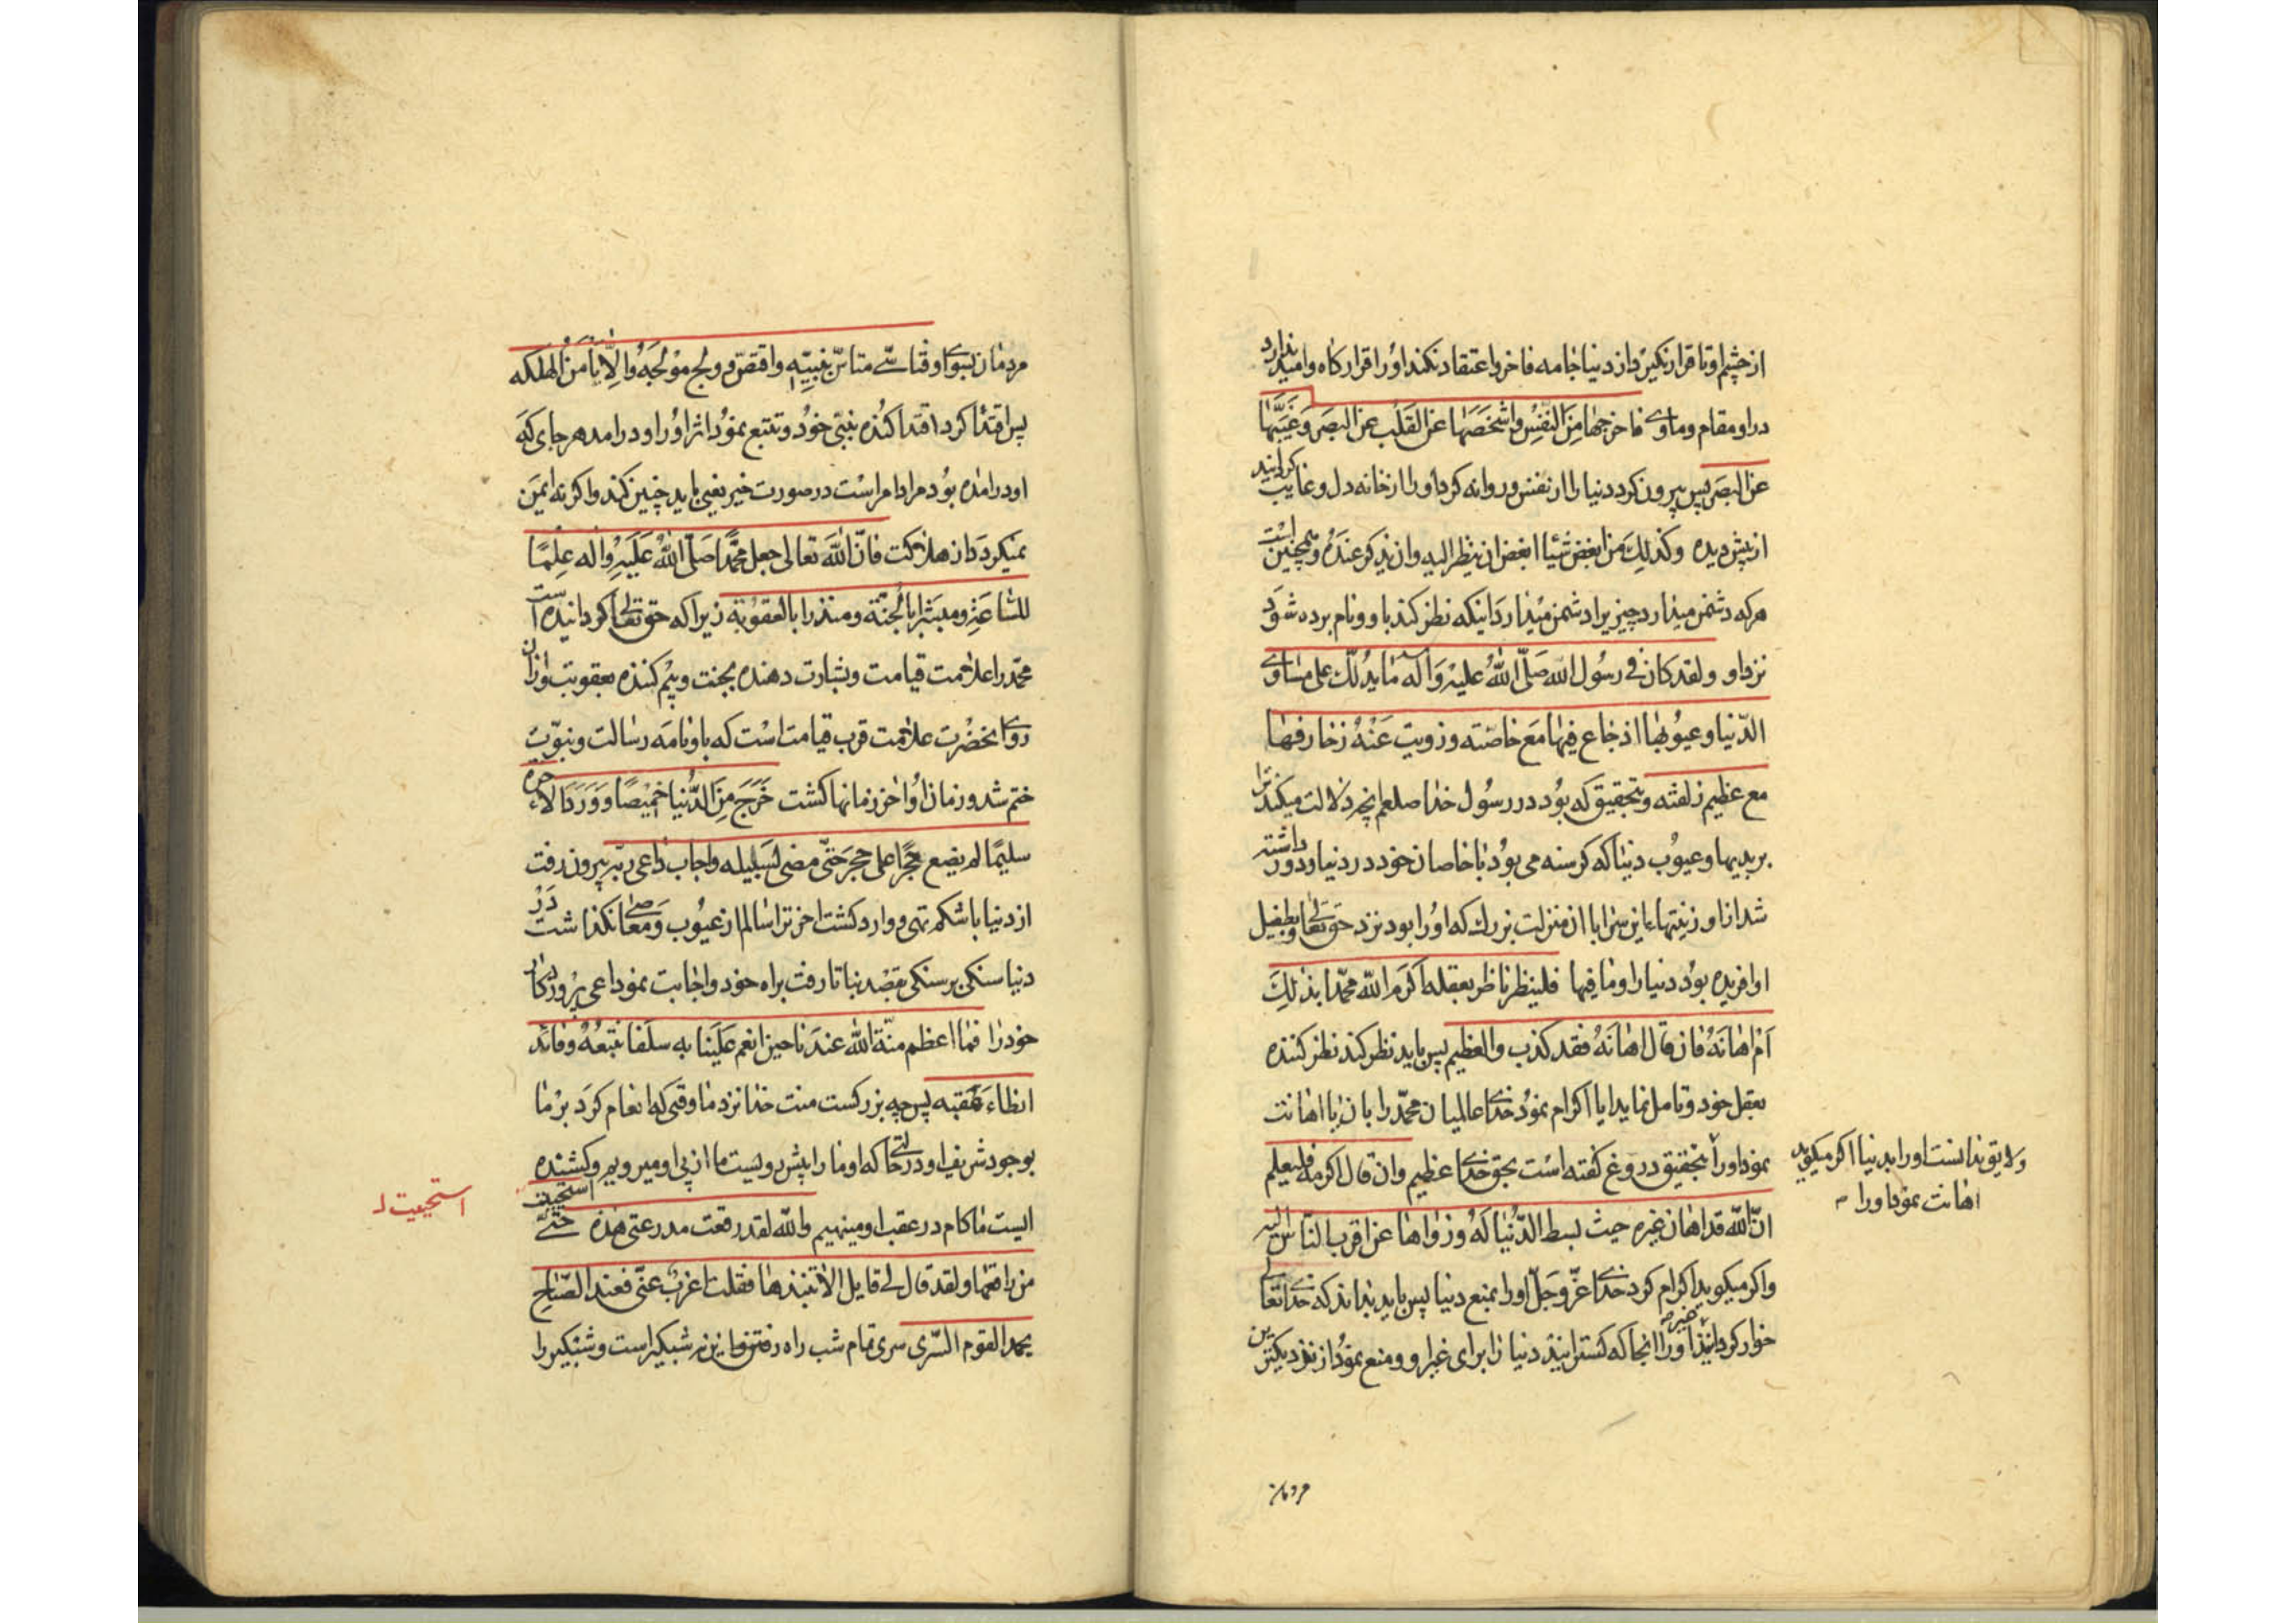 از چشم او تا قرار نگیرد از دنیا جامه فاخر و اعتقاد نکند او را قرارگاه و امید ندارد
در او مقام و ماوی فاخرجها مِنَ النفسِ و اشخَصَهٰا عن القَلب عن البصَر وَ غَیَّبَهٰا
عن البصَر پس بیرون کرد دنیا را از نفس و روانه کرد او را از خانه دل و غایب کردانید
از پیش دیده وکذلِكَ من ابغض شیئا ابغض ان ینظر الیه وان یذکر عندَهُ و همچنین است
هرکه دشمن میدارد چیزیرا دشمن میدارد اینکه نظر کند باو و نام برده شوَد
نزد او ولقد کان فے رسُول الله صَلَّی اللهُ علیهِ وَآله مٰا یدُلّك علی مسٰاوے
الدّنیا و عیُوبهٰا اذ جاع فیهٰا مَعَ خاصّته و زویت عَنْهُ زخارفهٰا
مع عظیم زلفته و بتحقیق که بوُد در رسُول خدا صلعم انچه دلالت میکند ترا
بر بدیها و عیوُب دنیا که کرسنه می بوُد با خاصان خود در دنیا و دور داشته
شد از او زینتهاء این سرا با ان منزلت بزرك که اوُرا بود نزد حق تعالی و بطفیل
او افریده بوُد دنیا را و ما فیها فلینظر ناظر بعقله اکرَمَ الله محمّدا بذٰلِكَ
اَم اهٰانَهُ فان قال اهانَهُ فقد کذب والعظیم پس باید نظر کند نظر کننده
بعقل خود و تامل نماید ایا اکرام نموُد خدای عالمیان محمّد را بان یا اهانت
نمود او را بتحقیق دروغ کفته است بحق خدای عظیم وان قال اکرمه فلیعلم
ولایق ندانست او را بدنیا اکر میکوید
اهانت نمود او را
انّ الله قد اهان غیره حیث بسط الدّنیا لَهُ و زواها عن اقرب النّاس الیه
واکر میکوید اکرام کرد خدای عزّ وجَلّ او را بمنع دنیا پس باید بداند که خدای تعالی
خوار کردانید غیر او را انجا که کسترانید دنیا را برای غیر او و منع نموُد از نزدیکترین
مردمان
مردمان بسوی او فتاسّے متاسّ بنبیّهِ واقتصّ و ولج موْلجَهُ والّا فلا یاْمَن الهلکه
پس اقتدا کرد اقتدا کننده بنبیّ خوُد و تتبع نموُد اثر اوُ را و درامد هر جای که
او درامده بوُد مراد امر است در صورت خبر یعنی باید چنین کند واکر نه ایمَن
نمیکردد از هلاکت فانّ اللهَ تعالی جعل محمّدًا صَلَّی اللهُ عَلَیهِ واله علمًا
للسّاعَةِ و مبشّرا بالجنّة و منذرا بالعقوُبة زیرا که حق تعالی کردانیده است
محمّد را علامت قیامت و بشارت دهنده بجنت و بیم کننده بعقوبت و از ان
روی انحضرت علامت قرب قیامت است که باو نامَه رسالت و نبوّت
ختم شد و زمان او اٰخر زمانها کشت خَرَجَ مِنَ الدُّنیا خمیصًا وَ وَرَدَ الاٰخره
سلیمًا لم یضع حجرًا علی حجرَ حتّی مضی لسَبیله واجاب داعی ربّه بیرون رفت
از دنیا با شکم تهی و وارد کشت اخرترا سالم از عیوُب وَ معاصی نکذاشت در
دنیا سنکی بر سنکی بقصد بنا تا رفت براه خود و اجابت نمود داعی پروردکار
خود را فمٰا اعظم منّة الله عندَنا حین انعم عَلَینا به سلَفا نتبعُهُ و قائد
انطاء عَقبه پس چه بزرکست منت خدا نزد ما وقتی که انعام کرَد برْ ما
بوجود شریف او در حالتی که او ما را پیش روست ما از پی او میرویم و کشنده
ایست ما کام در عقب او مینهیم والله لقد رقعت مدرعتی هٰذهِ حتّے استحییت
استحییت
من راقعها و لقد قال لے قایل الا تنبذها فقلت اغرب عنّی فعند الصّباحِ
یحمد القوم السّری سری تمام شب راه رفتن